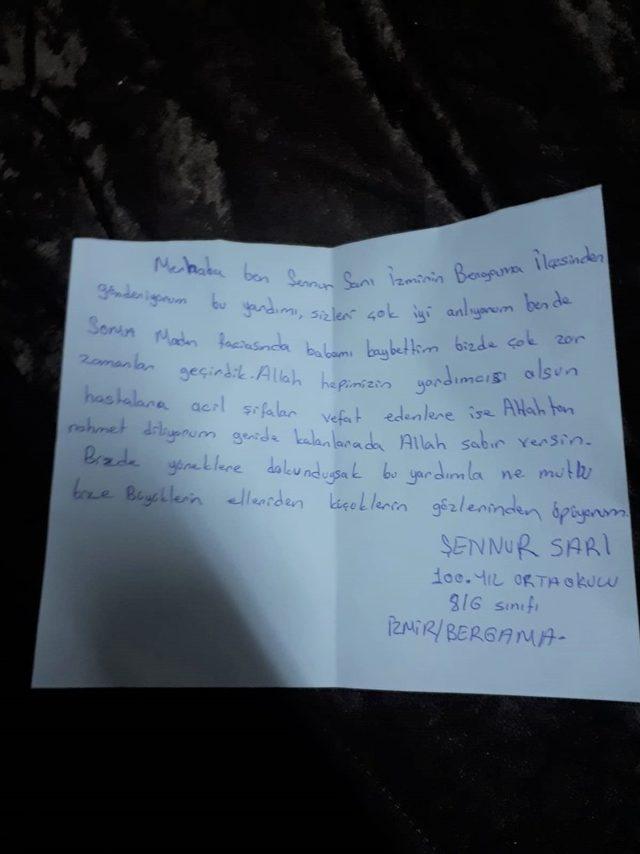 Merhaba ben Sennur Sarı İzminin Bergama İlçesinden
gönderiyorum bu yardımı, sizleri çok iyi anlıyorum bende
Soma Madn faciasında babamı kaybettim bizde çok zor
zamanlar geçirdik. Allah hepimizin yardımcısı olsun
hastalara acil şifalar vefat edenlere ise Allahtan
rahmet diliyorum geride kalanlarada Allah sabır versin.
Bizde yöreklere dokunduysak bu yardımla ne mutlu
bize Böyüklerin elleriden köçöklerin gözlerinden öpüyorum.
ŞENNUR SARI
100.YIL ORTAOKULU
8/G sınıfı
İZMİR/BERGAMA-